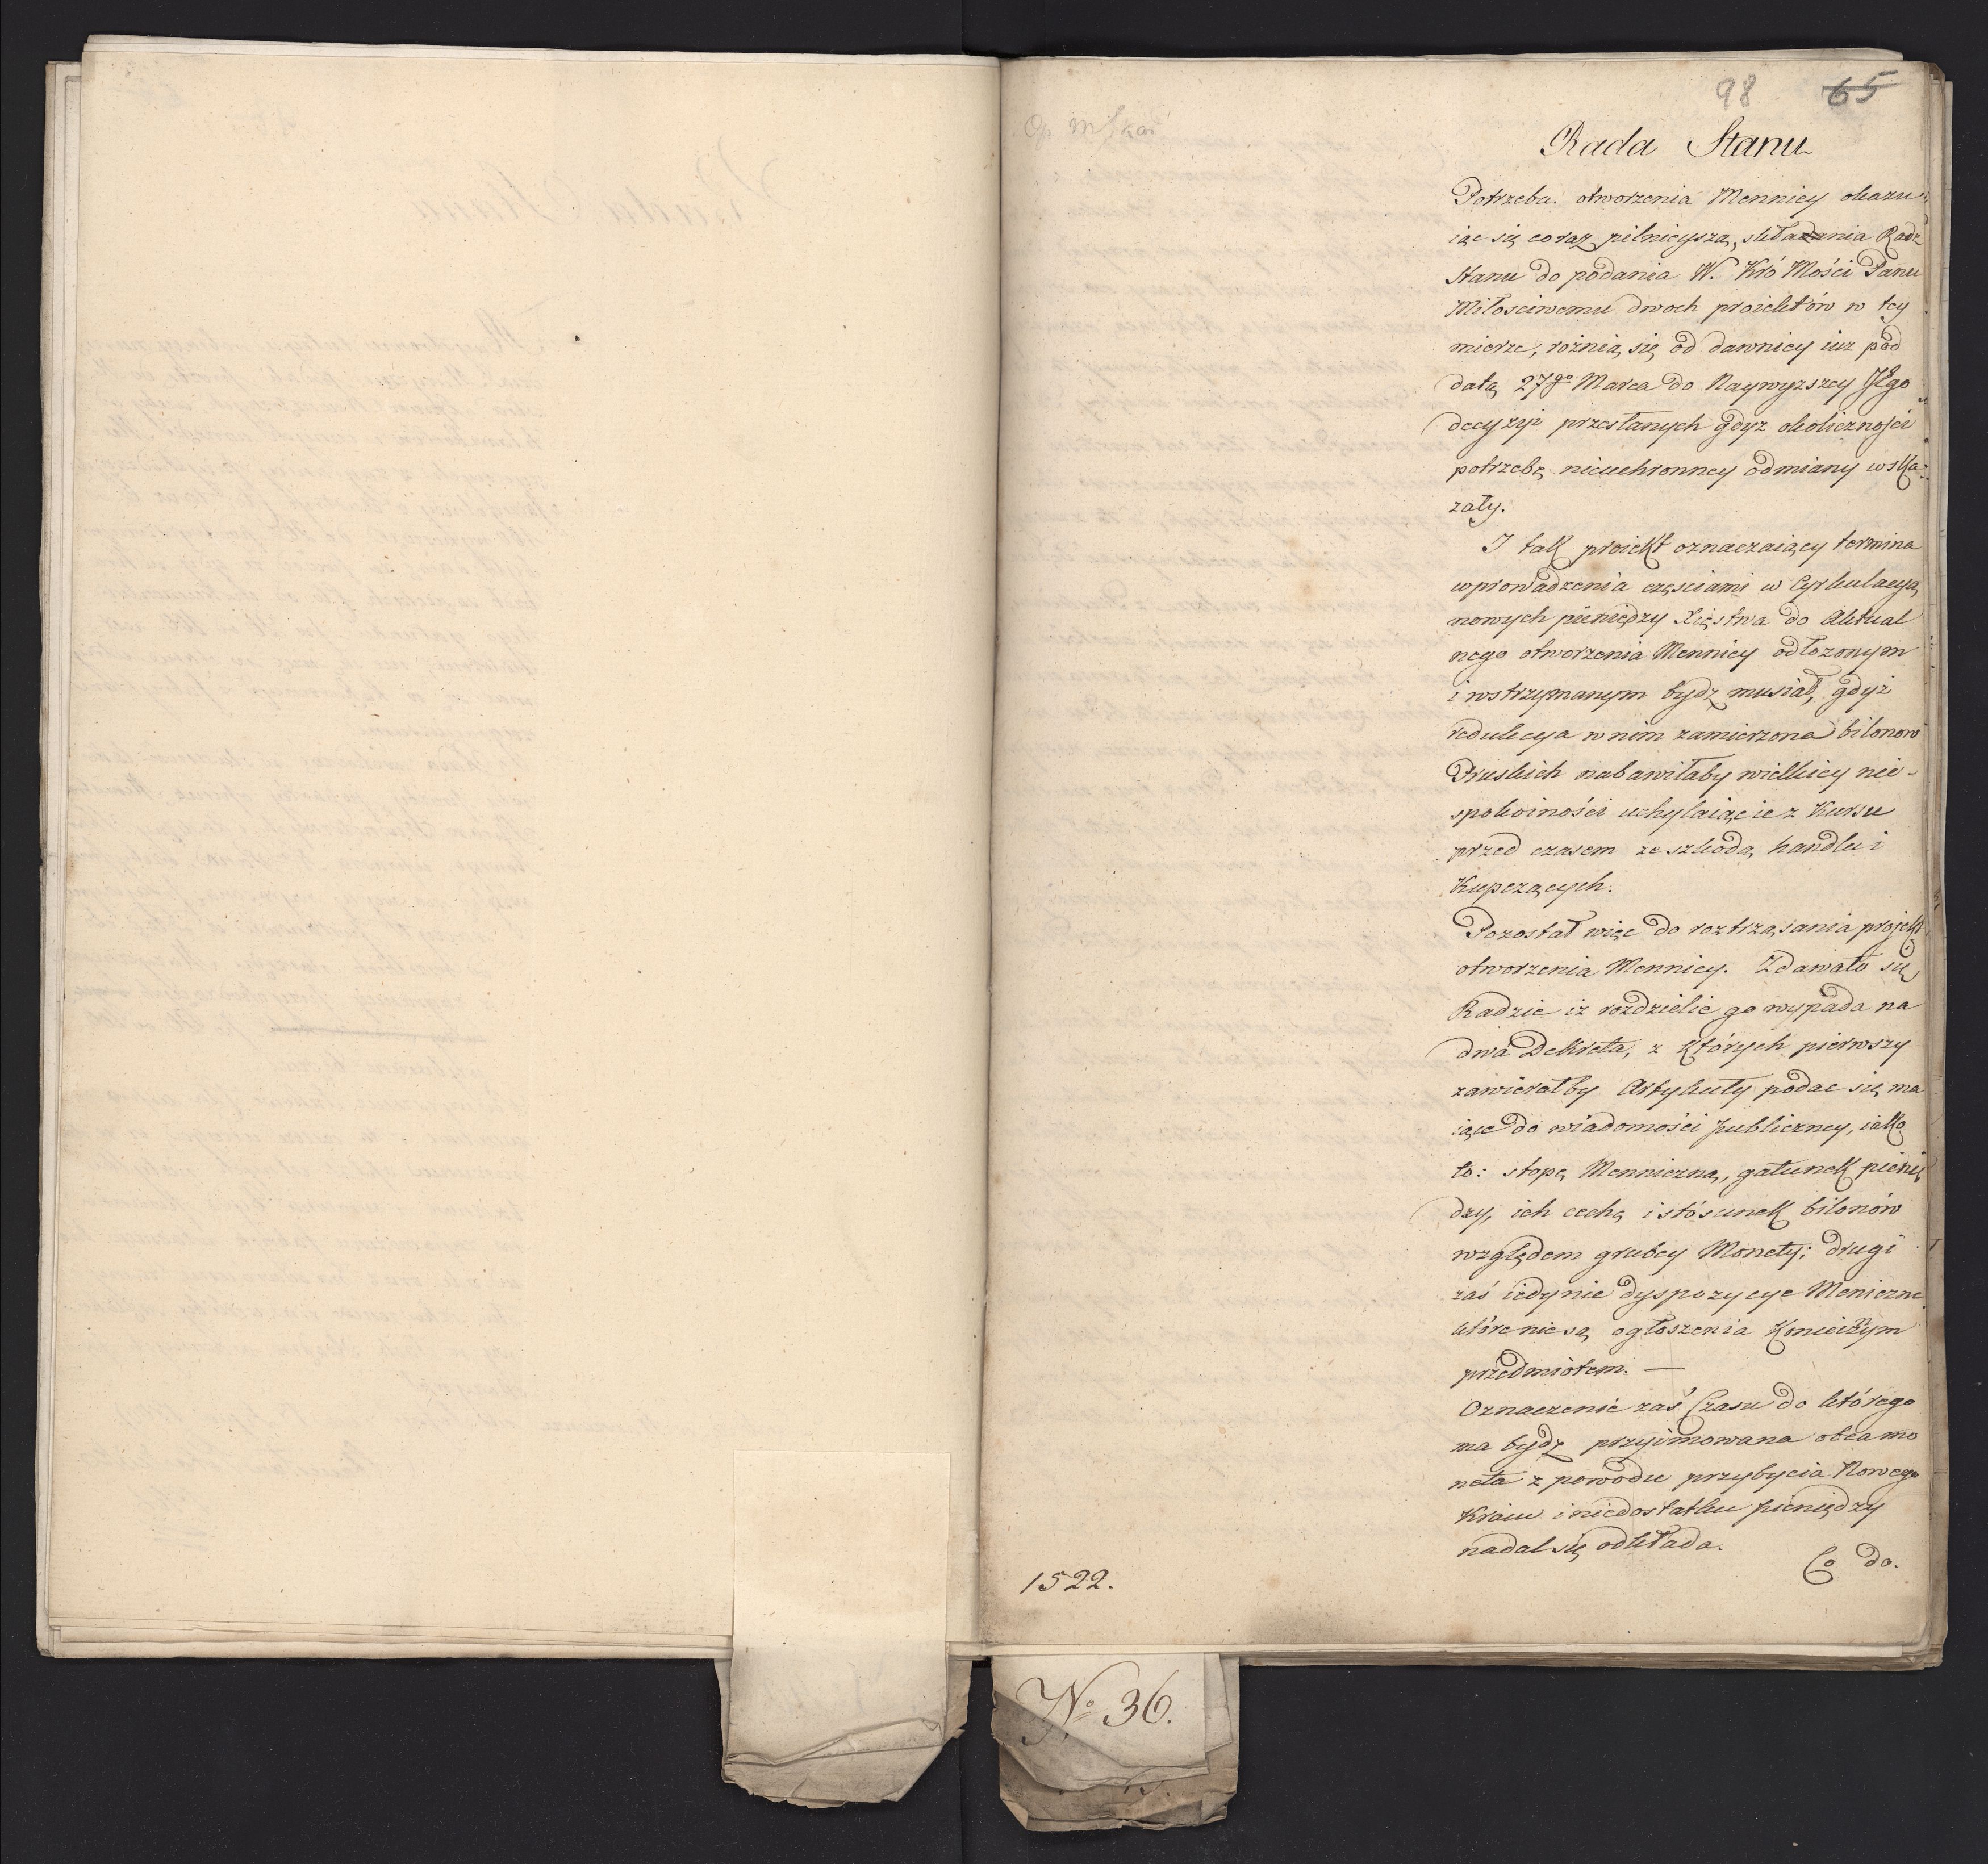 98 65
Rada Stanu
Potrzeba otworzenia Mennicy okazu-
iąc się coraz pilnieyszą, skłania Radę
Stanu do podania W. Kró Mości Panu
Miłosciwemu dwoch proiektów w tey
mierze, rożnią się od dawniey iuz pod
datą 27go Marca do Naywyzszey JEgo
decyzyi przesłanych gdyz okolicznosci
potrzebę nieuchronney odmiany wska-
zały.
I tak proiekt oznaczaiący termina
wprowadzenia częsciami w Cyrkulacyą
nowych pieniędzy Xięstwa do Aktual
nego otworzenia Mennicy odłozonym
i wstrzymanym bydz musiał, gdyż
redukcya w nim zamierzona bilonow
Pruskich nabawiłaby wielkiey nie-
spokoiności uchylaiąc ie z Kursu
przed czasem ze szkodą handlu i
Kupczących.
Pozostał więc do roztrząsania projekt
otworzenia Mennicy. Zdawało się
Radzie iz rozdzielic go wypada na
dwa Dekreta, z których pierwszy
zawierałby Artykuły podac się ma
iące do wiadomości publiczney, iako
to: stopę Menniczną, gatunek pienię
dzy, ich cechę i stósunek bilonów
względem grubey Monety; drugi
zaś iedynie dyspozycye Meniczne
które nie są ogłoszenia Koniecznym
przedmiotem. —
Oznaczenie zaś Czasu do którego
ma bydz przyimowana obca mo
neta z powodu przybycia Nowego
Kraiu i niedostatku pieniędzy
nadal się odkłada.
Co do.
1522.
No 36.